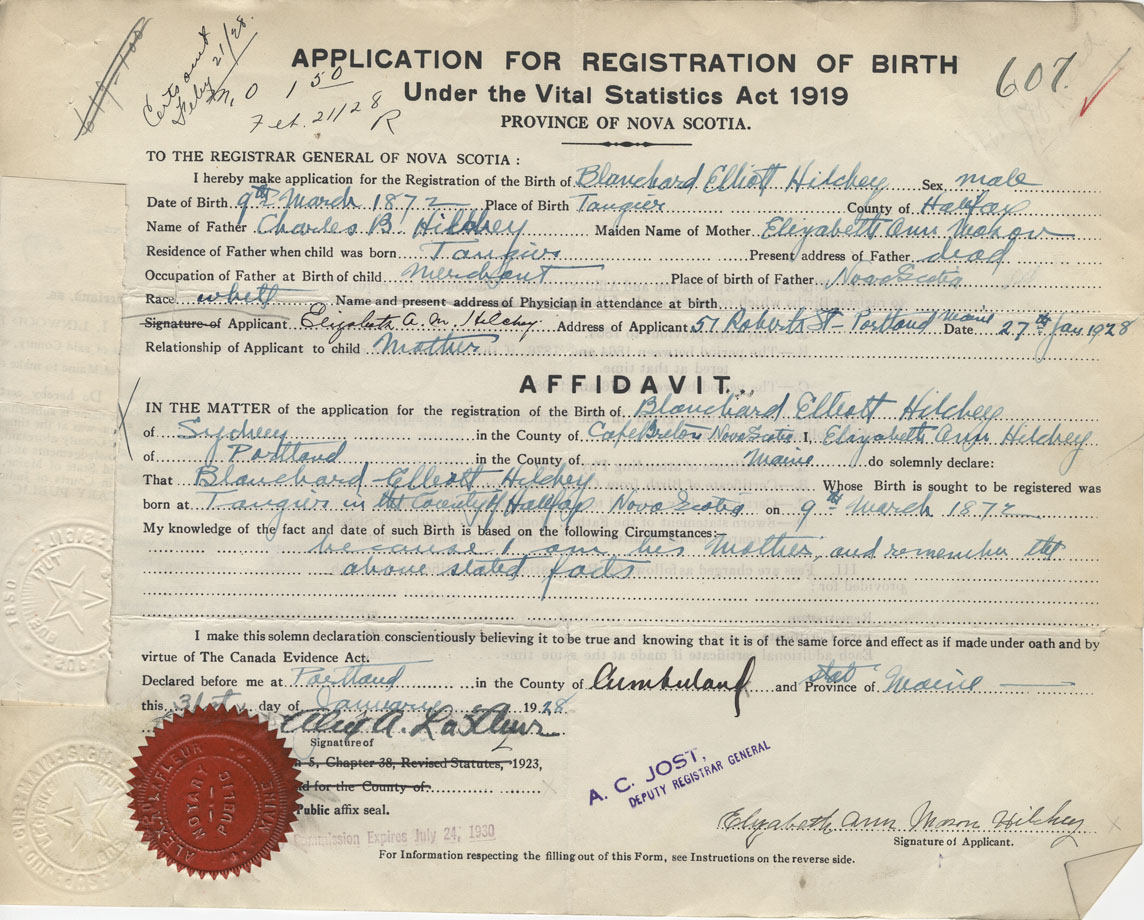 Certs out
Feby 21/28.
M, O 1 50
Feb. 21/28
R
607.
APPLICATION FOR REGISTRATION OF BIRTH
Under the Vital Statistics Act 1919
PROVINCE OF NOVA SCOTIA.
TO THE REGISTRAR GENERAL OF NOVA SCOTIA :
I hereby make application for the Registration of the Birth of Blanchard Elliott Hilchey Sex male
Date of Birth 9th March 1872 Place of Birth Tangier County of Halifax
Name of Father Charles B. Hilchey Maiden Name of Mother Elizabeth Ann
Residence of Father when child was born Tangier Present address of Father dead
Occupation of Father at Birth of child merchant Place of birth of Father Nova Scotia
Race Name and present address of Physician in attendance at birth
Signature of Applicant Elizabeth A. M. Hilchey Address of Applicant 57 Roberts St- Portland Maine Date 27th Jan 1928
Relationship of Applicant to child Mother
AFFIDAVIT.
IN THE MATTER of the application for the registration of the Birth of Blanchard Elliott Hilchey
of Sydney in the County of Cape Breton Nova Scotia I, Elizabeth Ann Hilchey
of Portland in the County of Maine do solemnly declare:
That Blanchard Elliott Hilchey Whose Birth is sought to be registered was
born at Tangier in the County of Halifax Nova Scotia on 9th March 1872
My knowledge of the fact and date of such Birth is based on the following Circumstances:—
because I am his Mother, and remember the
above stated facts
I make this solemn declaration conscientiously believing it to be true and knowing that it is of the same force and effect as if made under oath and by
virtue of The Canada Evidence Act.
Declared before me at Portland in the County of Cumberland and state Province of Maine
this 31st day of January 1928
Alex A. LaFleur
Signature of
5, Chapter 38, Revised Statutes, 1923,
d for the County of
Public affix seal.
ALEX A. LAFLEUR
NOTARY PUBLIC
MAINE
mmission Expires July 24, 1930
A. C. JOST,
DEPUTY REGISTRAR GENERAL
Elizabeth Ann Moson Hilchey
Signature of Applicant.
For Information respecting the filling out of this Form, see Instructions on the reverse side.